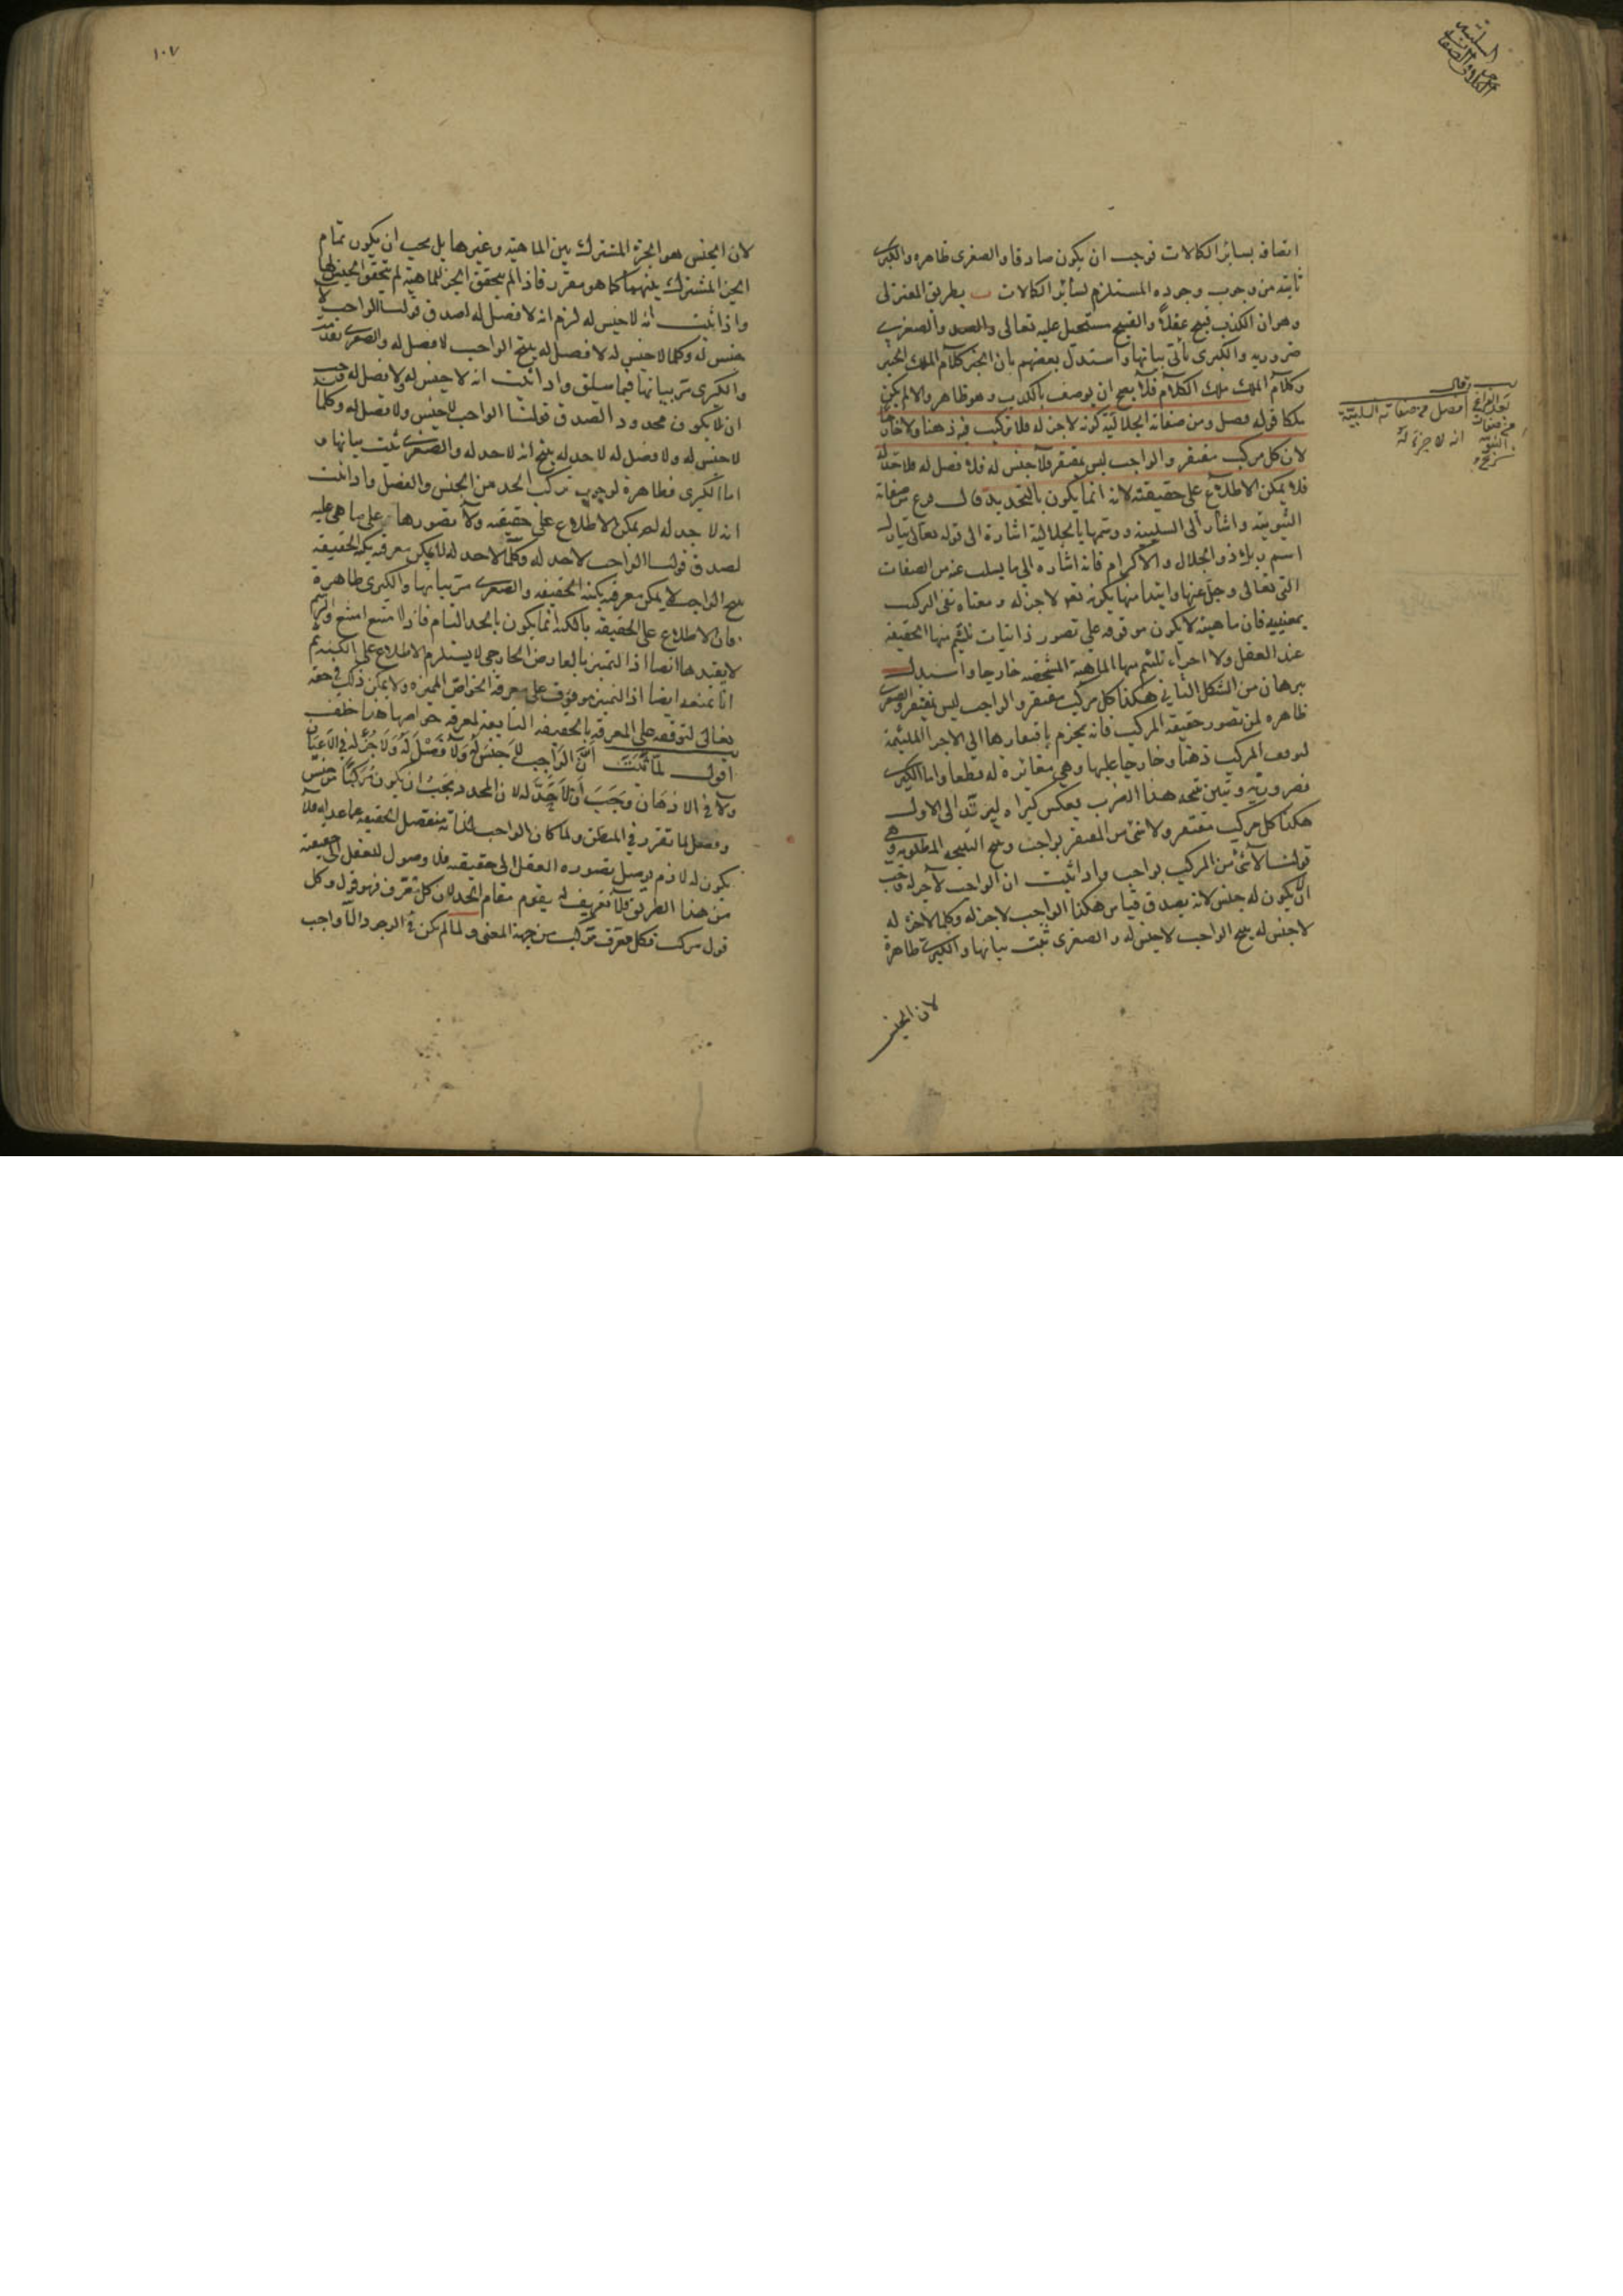 السلبية
الكلام والصفات
اتصافه بسائر الكمالات فوجب ان يكون صادقا والصغرى ظاهرة والكبرى
ثابته من وجوب وجوده المستلزم لسائر الكمالات ب بطريق المعتزلى
وهو ان الكذب قبيح عقلا والقبيح مستحيل عليه تعالى والصغرى
ضروريه والكبرى يأتى بيانها واستدل بعضهم بان الخبر كلام الملك
وكلام الملك ملك الكلام فلا يصح ان يوصف بالكذب وهو ظاهر والا لم يكن
ملكا قوله فصل ومن صفاته الجلالية كونه لا جزء له فلا تركيب فيه ذهنا ولا خارجا
لان كل مركب مفتقر والواجب ليس بمفتقر فلا جنس له فلا فصل له فلا حد له
فلا يمكن الاطلاع على حقيقته لانه انما يكون بالتحديد من صفاته
الثبوتية واشار الى السلبية ووسمها بالجلالية اشارة الى قوله تعالى تبارك
اسم ربك ذو الجلال والاكرام فانه اشاره الى ما يسلب عنه من الصفات
التى تعالى وجل عنها وابتدا منها بكونه تعالى لا جزء له ومعناه نفى التركيب
بمعنييه فان ماهيته لا يكون موقوفه على تصور ذاتيات تلتئم منها الحقيقة
عند العقل ولا اجزاء تلتئم منها الماهية المشخصه خارجا واستدل
ببرهان من الشكل الثانى هكذا كل مركب مفتقر والواجب ليس بمفتقر والصغرى
ظاهره لمن تصور حقيقة المركب فانه يجزم بافتقارها الى الاجزاء الملتئمة
لتوقف المركب ذهنا وخارجا عليها وهى مغائرة له قطعا واما الكبرى
فضرورية وتبين هذا الضرب بعكس كبراه ليرتد الى الاول
هكذا كل مركب مفتقر ولا شئ من المفتقر بواجب وينتج النتيجه المطلوبه وهى
قولنا لا شئ من المركب بواجب واذا ثبت ان الواجب لا جزء له وجب
ان لا يكون له جنس لانه يصدق قياس هكذا الواجب لا جزء له وكلما لا جزء له
لا جنس له ينتج الواجب لا جنس له والصغرى ثبت بيانها والكبرى ظاهرة
لان الجنس
فصل فى صفاته السلبية
انه لا جزء له
١٠٧
لان الجنس هو الجزء المشترك بين الماهية وغيرها بل يجب ان يكون تمام
الجزء المشترك بينهما كما هو مقرر فاذا لم يتحقق الجزء للماهية لم يتحقق الجنس لها
واذا ثبت انه لا جنس له لزم انه لا فصل له لصدق قولنا الواجب لا
جنس له وكلما لا جنس له لا فصل له ينتج الواجب لا فصل له والصغرى تقدمت
والكبرى مر بيانها فيما سلف واذا ثبت انه لا جنس له ولا فصل له وجب
ان لا يكون محدودا لصدق قولنا الواجب لا جنس ولا فصل له وكلما
لا جنس له ولا فصل له لا حد له ينتج انه لا حد له والصغرى ثبت بيانها و
اما الكبرى فظاهرة لوجوب تركب الحد من الجنس والفصل واذا ثبت
انه لا حد له لم يمكن الاطلاع على حقيقته ولا تصورها على ما هى عليه
لصدق قولنا الواجب لا حد له وكلما لا حد له لا يمكن معرفته بكنه الحقيقه
ينتج الواجب لا يمكن معرفته بكنه الحقيقه والصغرى مر بيانها والكبرى ظاهرة
فان الاطلاع على الحقيقه بالكنه انما يكون بالحد التام فاذا امتنع امتنع والرسم
لا يفيدها ايضا اذ التميز بالعارض الخارجى لا يستلزم الاطلاع على الكنه ثم
انا نمنعه ايضا اذ التميز موقوف على معرفة الخواص المميزه ولا يمكن ذلك فى حقه
تعالى لتوقفه على المعرفه بالحقيقه التابعة لمعرفة خواصها هذا خلف
اقول لما ثبت ان الواجب لا جنس له ولا فصل له ولا جزء له فى الاعيان
ولا فى الاذهان وجب ان لا حد له لان المحدود يجب ان يكون مركبا من جنس
وفصل لما تقرر فى المنطق ولما كان الواجب لذاته منفصل الحقيقه عما عداه فلا
يكون له لازم يوصل تصوره العقل الى حقيقته فلا وصول للعقل الى حقيقته
من هذا الطريق فلا تعريف له يقوم مقام الحد لان كل معرف فهو قول وكل
قول مركب فكل معرف مركب من جهة المعنى ولما لم يكن فى الوجود الا واجب